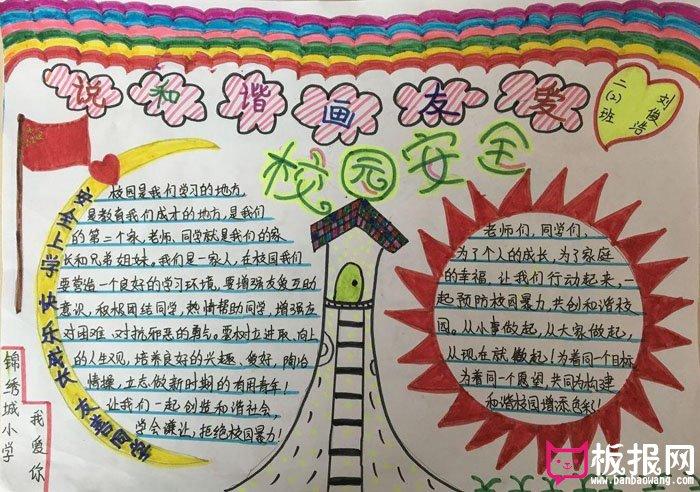 说和谐画友爱
二(2)班
刘俊浩
校园安全
安全上学 快乐成长 友善同学
校园是我们学习的地方,
是教育我们成才的地方,是我们
的第二个家,老师、同学就是我们的家
长和兄弟姐妹。我们是一家人,在校园我们
要营造一个良好的学习环境,要增强友爱互助
意识,积极团结同学,热情帮助同学,增强应
对困难、对抗邪恶的勇气。要树立进取、向上
的人生观,培养良好的兴趣、爱好,陶冶
情操,立志做新时期的有用青年!
让我们一起创造和谐社会,
学会谦让,拒绝校园暴力!
老师们,同学们,
为了个人的成长,为了家庭
的幸福,让我们行动起来,一
起预防校园暴力,共创和谐校
园。从小事做起,从大家做起,
从现在就做起!为着同一个目标
为着同一个愿望,共同为构建
和谐校园增添色彩!
锦绣城小学
我爱你
板报网
www.banbaowang.com